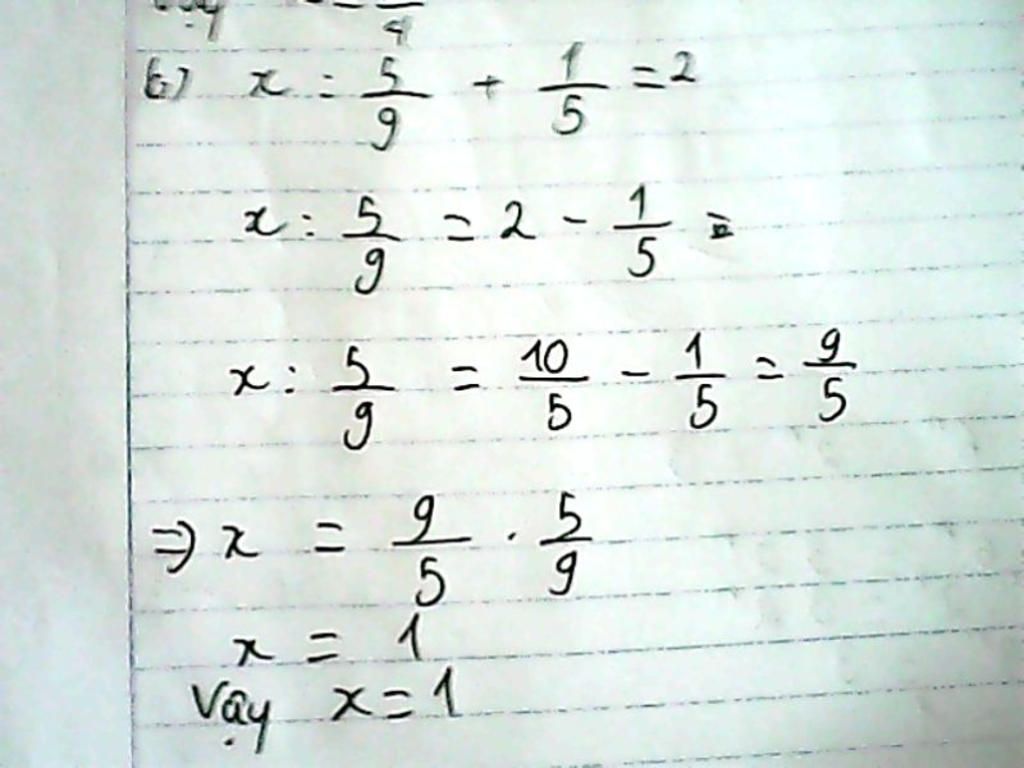 b) x : 5/9 + 1/5 = 2
x : 5/9 = 2 - 1/5 =
x : 5/9 = 10/5 - 1/5 = 9/5
=> x = 9/5 . 5/9
x = 1
Vậy x = 1